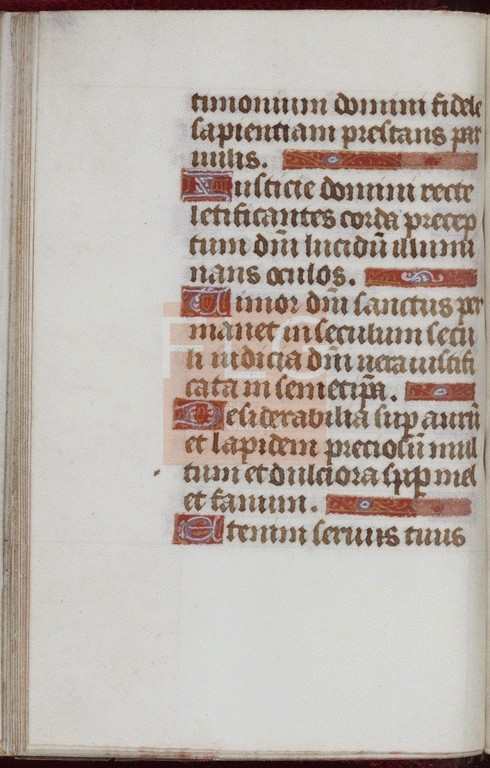 timonium domini fidele
sapientiam prestans par
uulis.
Iusticie domini recte
letificantes corda precep
tum dñi lucidũ illumi
nans oculos.
Timor dñi sanctus per
manet in seculum secu
li iudicia dñi uera iustifi
cata in semetipa.
Desiderabilia sup aurũ
et lapidem preciosũ mul
tum et dulciora sup mel
et fauum.
Etenim seruus tuus